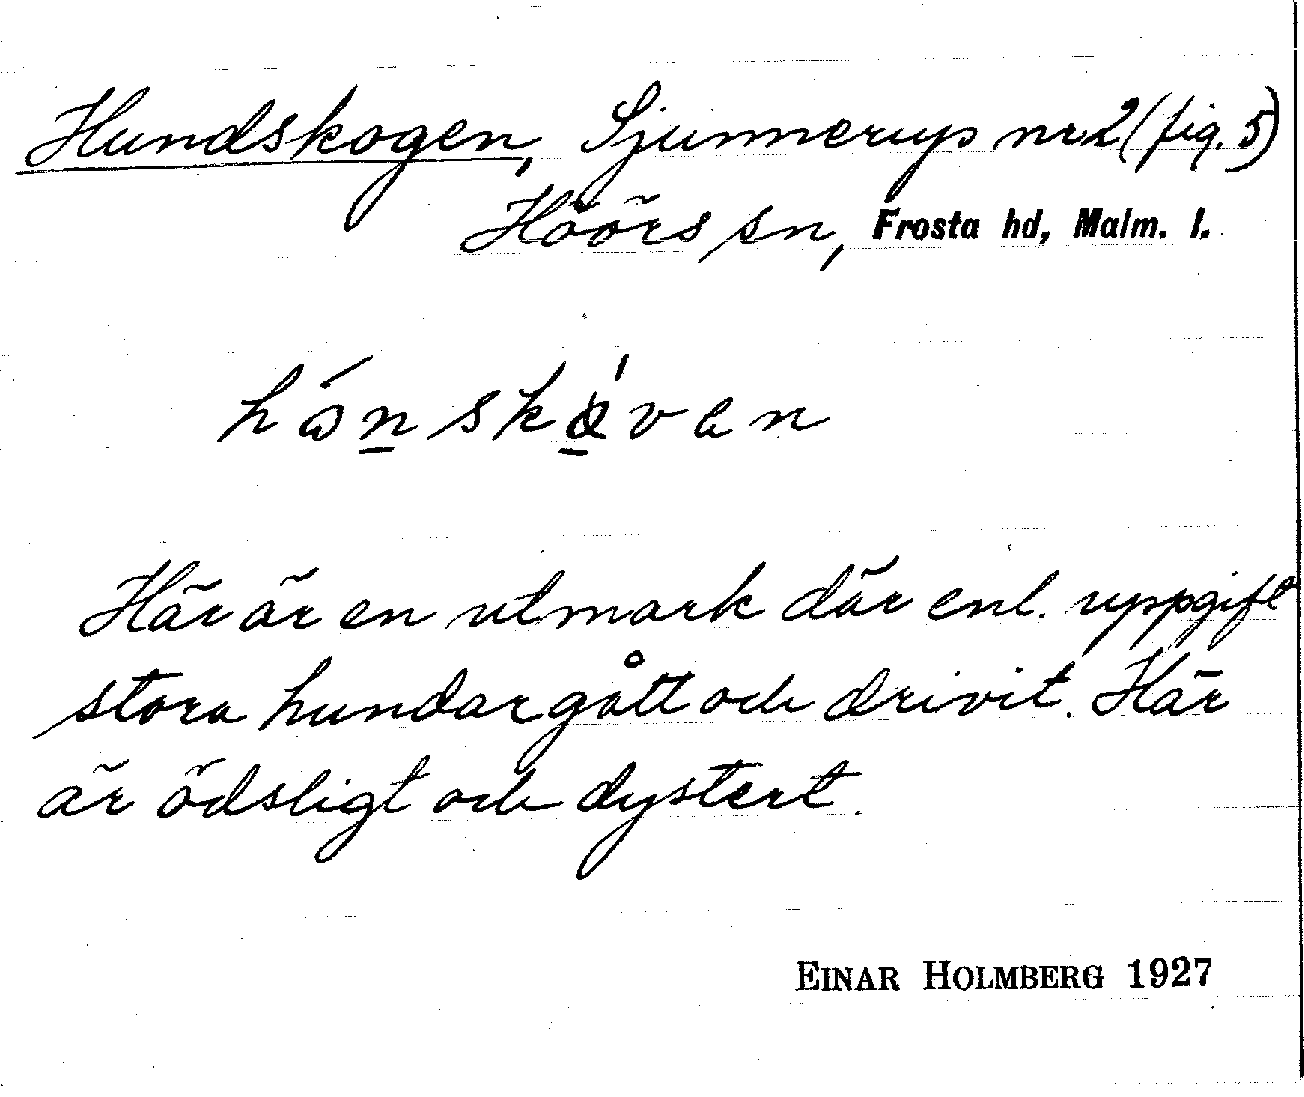 Hundskogen, Sjunnerup nr 2 (fig. 5)
Höörs sn, Frosta hd, Malm. l.
hánskávan
Här är en utmark där enl. uppgift
stora hundar gått och drivit. Här
är ödsligt och dystert.
EINAR HOLMBERG 1927